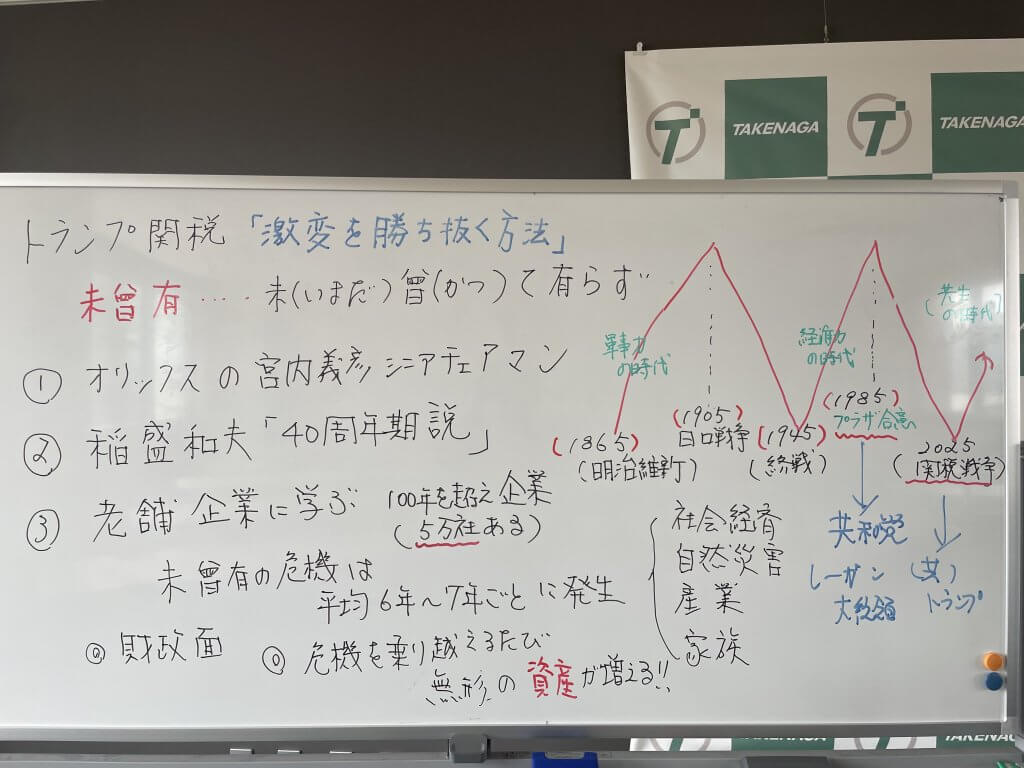 TAKENAGA
TAKENAGA
トランプ関税「激変を勝ち抜く方法」
未曾有‥‥未(いまだ)曾(かつ)て有らず
① オリックスの宮内義彦シニアチェアマン
② 稲盛和夫「40周年期説」
③ 老舗企業に学ぶ 100年を超え企業
(5万社ある)
未曾有の危機は
平均6年〜7年ごとに発生
◎ 財政面 ◎ 危機を乗り越えるたび
無形の資産が増える!!
社会経済
自然災害
産業
家族
軍事力
の時代
経済力
の時代
(共生
の時代)
(1865)
(明治維新)
(1905)
日口戦争
(1945)
(終戦)
(1985)
プラザ合意
2025
(関税戦争)
共和党
レーガン
大統領
(共)
トランプ
TAKENAGA
TAKENAGA